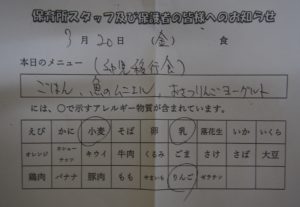 保育所スタッフ及び保護者の皆様へのお知らせ
3月20日(金)食
本日のメニュー(幼児移行食)
ごはん、魚のムニエル、おさつりんごヨーグルト
には、〇で示すアレルギー物質が含まれています。
えび かに 小麦 そば 卵 乳 落花生 いか いくら
オレンジ カシューナッツ キウイ 牛肉 くるみ ごま さけ さば 大豆
鶏肉 バナナ 豚肉 もも やまいも りんご ゼラチン